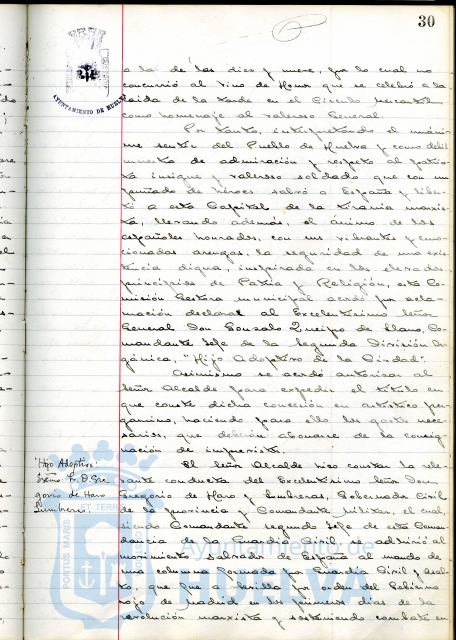 30
AYUNTAMIENTO DE HUELVA
a la de las diez y nueve, por lo cual no
concurrió al vino de Honor que se celebró a la
caida de la tarde en el Círculo Mercantil
como homenaje al valeroso General.
Por tanto, interpretando el unáni
me sentir del Pueblo de Huelva y como debil
muestra de admiración y respeto al patrio
ta insigne y valeroso soldado que con un
puñado de héroes salvó a España y liber
tó a esta Capital de la tiranía marxis
ta, llevando además, el ánimo de los
españoles honrados, con sus vibrantes y emo
cionadas arengas, la seguridad de una exis
tencia digna, inspirada en los elevados
principios de Patria y Religión, esta Co
misión Gestora municipal acordó por acla
mación declarar al Excelentísimo Señor
General Don Gonzalo Queipo de Llano, Co
mandante Jefe de la Segunda División Or
gánica, "Hijo Adoptivo de la Ciudad".
Asimismo se acordó autorizar al
Señor Alcalde para expedir el título en
que conste dicha concesión en artístico per
gamino, haciendo para ello los gastos nece
sarios, que deberán abonarse de la consig
nación de imprevistos.
'Hijo Adoptivo'
Excmo. Sr. D. Gre
gorio de Haro
Lumbreras.
El Señor Alcalde hizo constar la rele
vante conducta del Excelentísimo Señor Don
Gregorio de Haro y Lumbreras, Gobernador Civil
de la provincia y Comandante Militar, el cual,
siendo Comandante segundo Jefe de esta Coman
dancia de la Guardia Civil, se adhirió al
movimiento salvador de España al mando de
una columna formada por Guardia Civil y Asal
to, que iba a Sevilla por orden del Gobierno
rojo de Madrid en los primeros días de la
revolución marxista y sosteniendo combate en
PORTUS MARIS ET TERRAE
Ayuntamiento de
HUELVA